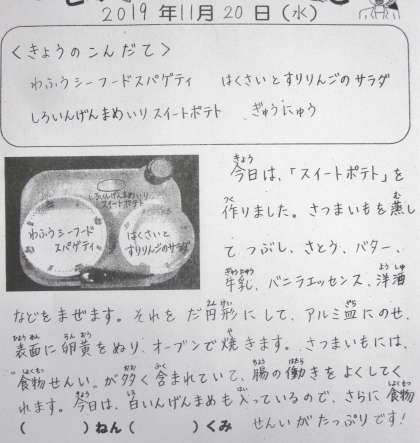 2019年11月20日(水)
<きょうのこんだて>
わふうシーフードスパゲティ はくさいとすりりんごのサラダ
しろいんげんまめいりスイートポテト ぎゅうにゅう
しろいんげんまめいり
スイートポテト
わふうシーフード
スパゲティ
はくさいと
すりりんごのサラダ
今日は、「スイートポテト」を
作りました。さつまいもを蒸し
てつぶし、さとう、バター、
牛乳、バニラエッセンス、洋酒
などをまぜます。それをだ円形にして、アルミ皿にのせ、
表面に卵黄をぬり、オーブンで焼きます。さつまいもには、
"食物せんい"が多く含まれていて、腸の働きをよくしてく
れます。今日は、白いんげんまめも入っているので、さらに食物
( )ねん( )くみ せんいがたっぷりです!